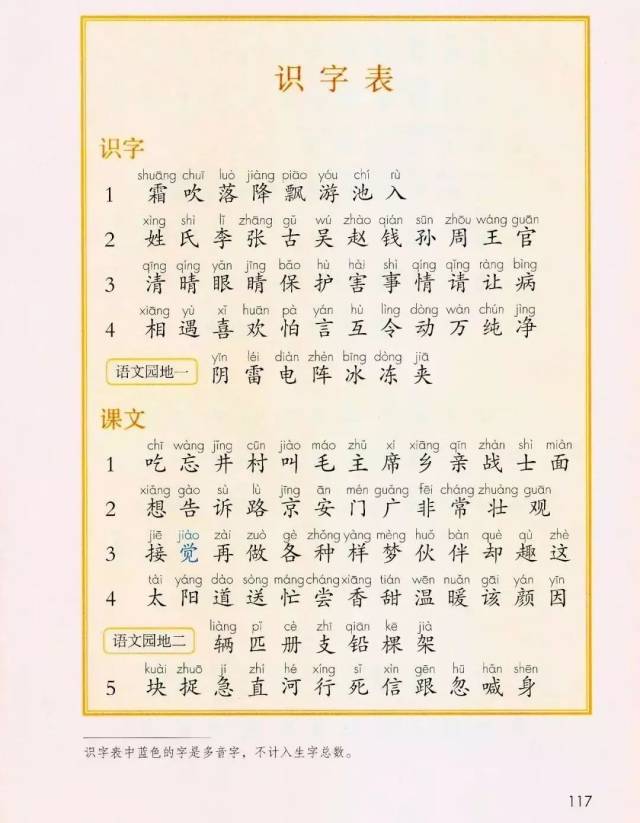 识字表
识字
shuāng chuī luò jiàng piāo yóu chí rù
1 霜吹落降飘游池入
xìng shì lǐ zhāng gǔ wú zhào qián sūn zhōu wáng guān
2 姓氏李张古吴赵钱孙周王官
qīng qíng yǎn jīng bǎo hù hài shì qíng qǐng ràng bìng
3 清晴眼睛保护害事情请让病
xiāng yù xǐ huān pà yán hù lìng dòng wàn chún jìng
4 相遇喜欢怕言互令动万纯净
yīn léi diàn zhèn bīng dòng jiā
语文园地一 阴雷电阵冰冻夹
课文
chī wàng jǐng cūn jiào máo zhǔ xí xiāng qīn zhàn shì miàn
1 吃忘井村叫毛主席乡亲战士面
xiǎng gào sù lù jīng ān mén guǎng fēi cháng zhuàng guān
2 想告诉路京安门广非常壮观
jiē jiào zài zuò gè zhǒng yàng mèng huǒ bàn què qù zhè
3 接觉再做各种样梦伙伴却趣这
tài yáng dào sòng máng cháng xiāng tián wēn nuǎn gāi yán yīn
4 太阳道送忙尝香甜温暖该颜因
liàng pǐ cè zhī qiān kē jià
语文园地二 辆匹册支铅棵架
kuài zhuō jí zhí hé xíng sǐ xìn gēn hū hǎn shēn
5 块捉急直河行死信跟忽喊身
识字表中蓝色的字是多音字，不计入生字总数。
117